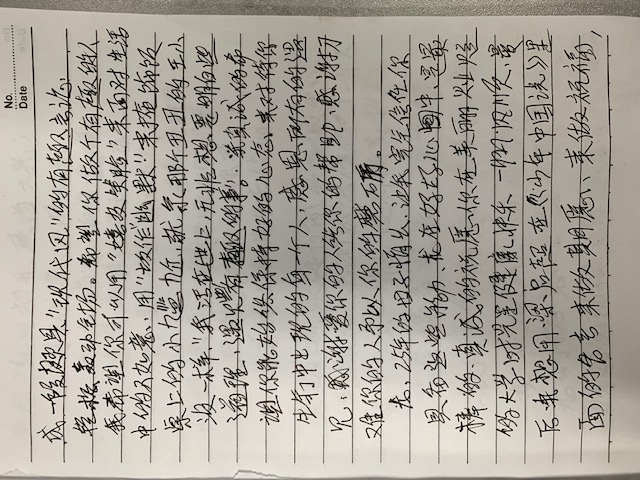 No.
Date
或一段颇具"现代风"的有趣言论,
轻松轰动全场。希望你做个有趣的人
我希望你可以用"嬉皮笑脸"来面对生活
中的不如意,用"故作幽默"来掩饰饭
桌上的小尴尬,就象那个丑丑的王小
波一样,"我活在世上,无非想要明白些
道理,遇见些有趣的事"。我真诚的希
望你能始终保持好的心态。来对待你
生命中出现的每一个人,感恩所有的遇
见,感谢爱你的人给你的帮助,感谢打
难你的人予以你的磨石房。
龙,25年的母子情长,让我完全信任你
具备这些能力,龙在好好心中,是最
棒的,真诚的祝愿你在美丽
的大学时光里健康快乐一切顺,最
后我想用梁启超在《少年中国说》里
面的名言来做期愿、来做祝福,